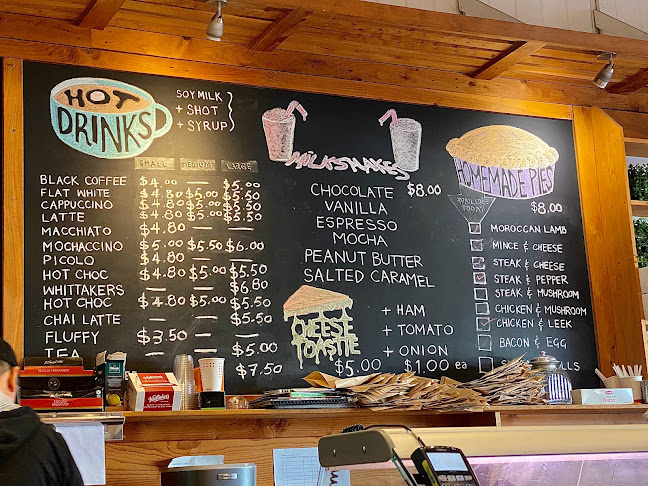 HOT DRINKS
SOY MILK
+ SHOT
+ SYRUP
SMALL MEDIUM LARGE
BLACK COFFEE $4.00 — $5.00
FLAT WHITE $4.80 $5.00 $5.50
CAPPUCCINO $4.80 $5.00 $5.50
LATTE $4.80 $5.00 $5.50
MACCHIATO $4.80 — —
MOCHACCINO $5.00 $5.50 $6.00
PICOLO $4.80 — —
HOT CHOC $4.80 $5.00 $5.50
WHITTAKERS — — $6.80
HOT CHOC $4.80 $5.00 $5.50
CHAI LATTE — — $5.50
FLUFFY $3.50 — —
TEA — — $5.00
— — $7.50
MILKSHAKES
CHOCOLATE $8.00
VANILLA
ESPRESSO
MOCHA
PEANUT BUTTER
SALTED CARAMEL
CHEESE
TOASTIE
$5.00
+ HAM
+ TOMATO
+ ONION
$1.00 ea
HOMEMADE PIES
AVAILABLE
TODAY
$8.00
MOROCCAN LAMB
MINCE & CHEESE
STEAK & CHEESE
STEAK & PEPPER
STEAK & MUSHROOM
CHICKEN & MUSHROOM
CHICKEN & LEEK
BACON & EGG